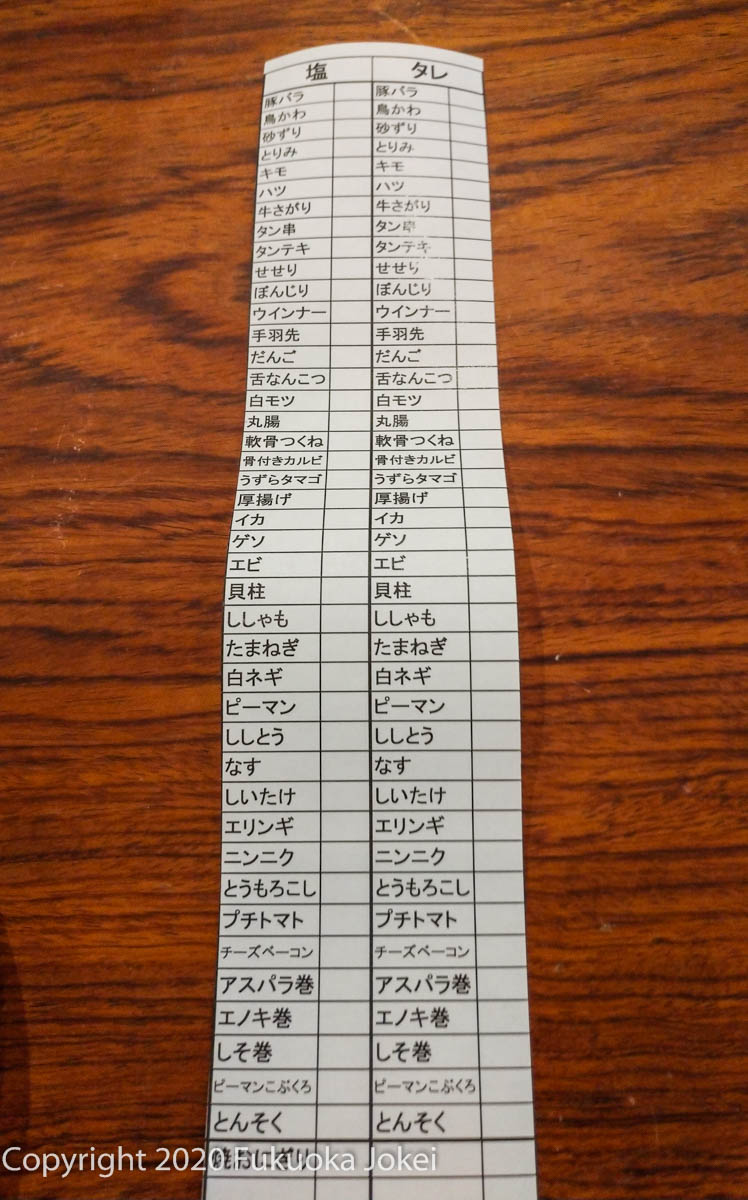 塩 タレ
豚バラ 豚バラ
鳥かわ 鳥かわ
砂ずり 砂ずり
とりみ とりみ
キモ キモ
ハツ ハツ
牛さがり 牛さがり
タン串 タン串
タンテキ タンテキ
せせり せせり
ぼんじり ぼんじり
ウインナー ウインナー
手羽先 手羽先
だんご だんご
舌なんこつ 舌なんこつ
白モツ 白モツ
丸腸 丸腸
軟骨つくね 軟骨つくね
骨付きカルビ 骨付きカルビ
うずらタマゴ うずらタマゴ
厚揚げ 厚揚げ
イカ イカ
ゲソ ゲソ
エビ エビ
貝柱 貝柱
ししゃも ししゃも
たまねぎ たまねぎ
白ネギ 白ネギ
ピーマン ピーマン
ししとう ししとう
なす なす
しいたけ しいたけ
エリンギ エリンギ
ニンニク ニンニク
とうもろこし とうもろこし
プチトマト プチトマト
チーズベーコン チーズベーコン
アスパラ巻 アスパラ巻
エノキ巻 エノキ巻
しそ巻 しそ巻
ピーマンこぶくろ ピーマンこぶくろ
とんそく とんそく
焼おにぎり
Copyright 2020 Fukuoka Jokei